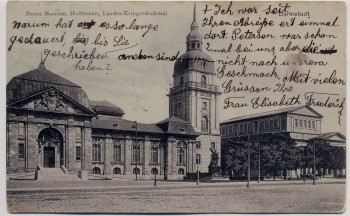 Neues Museum, Hoftheater, Landes-Kriegerdenkmal
Darmstadt
Warum hat es so lange
gedauert, bis Sie
geschrieben
haben?
+ Ich war seit
Ihrer Abreise erst einmal
dort. Petersen war schon
2 mal bei uns, aber die
nicht nach unsrem
Geschmack. Mit vielen
Grüssen Ihre
Frau Elisabeth